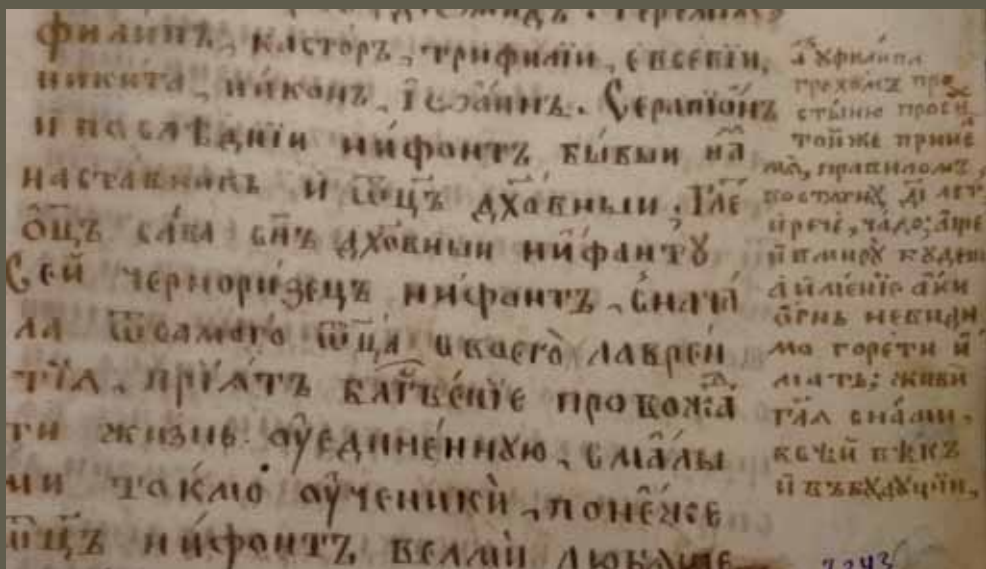 филипъ, касторъ, трифилїи, євсевїи,
никита, никонъ, їѡаннъ. Серапїо́нъ
и послѣднїи ни́фонтъ бы́выи на́
наставникъ и҆ ѿц҃ъ дх҃о́вныи. Гл҃е
о҆ц҃ъ са́ва сн҃ъ дх҃о́вныи ни́фантꙋ
Сей черно́ри́зецъ ни́фантъ, снача́
ла ѿ самаго ѿц҃а́ своего̀ лавре́н
тїѧ, прїѧ́тъ блг҃ве́нїе прово́жⷣа
ти жизнь ᲂу҆едине́ннꙋю, сма́лы
ми то́кмо ᲂу҆ченикѝ, поне́же
ѿц҃ъ ни́фонтъ велмѝ любѧше
ᲂу҆ филиппа
грехомъ про
сты́ню проси
то́йже прїиме
правиломъ,
рече́, ча́до; а҆ще
и҆ в мирꙋ бꙋдеши
а и҆мѣ́нїе а҆ки
ѻ҆гнь невиди
мо горе́ти и҆
мать: живи
гл҃ѧ сна́ми,
в се́й вѣ́къ
и҆ въ бꙋдꙋщїи,
2243